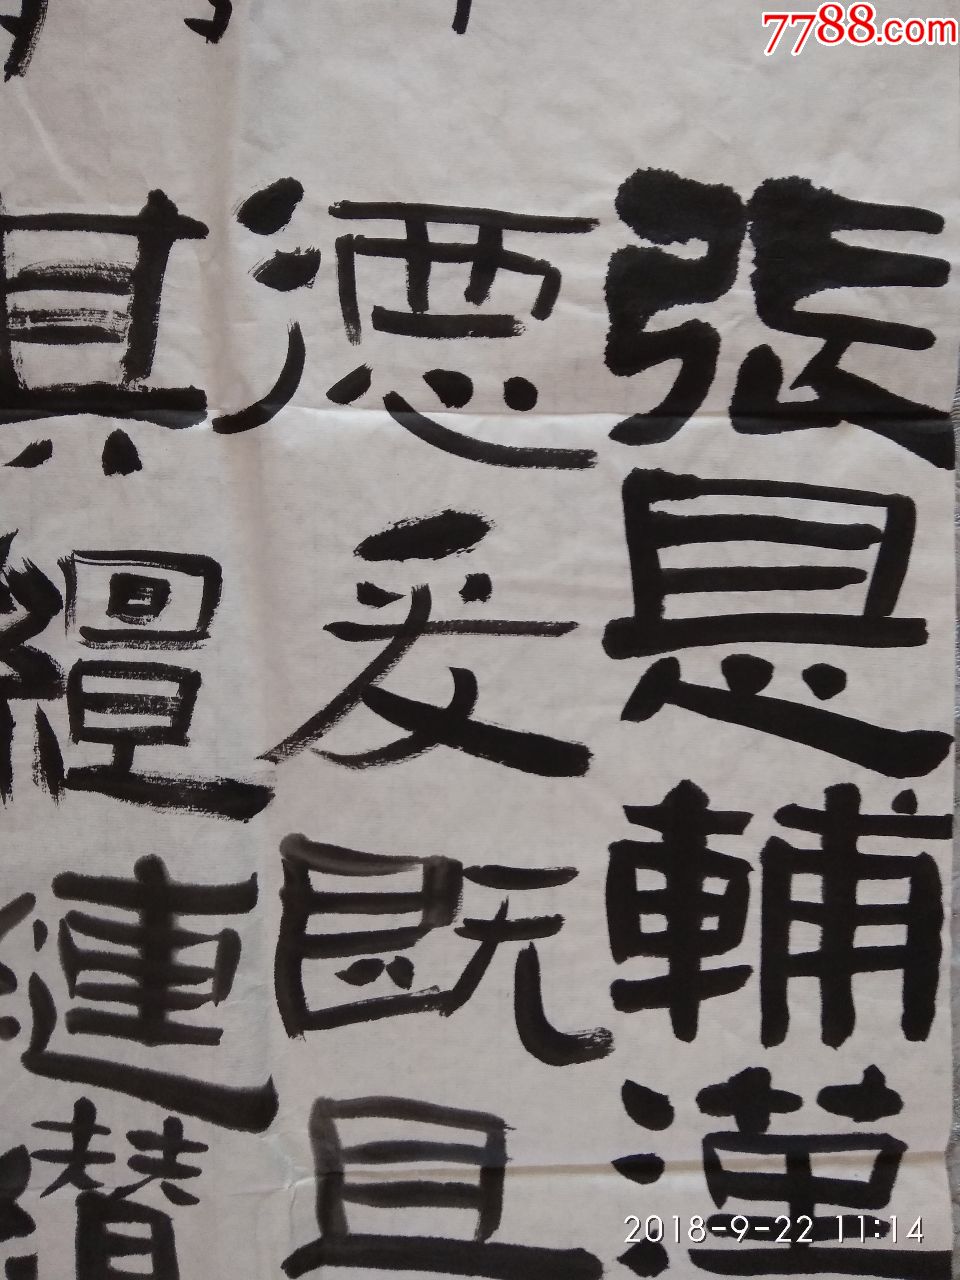 7788.com
張是輔漢
德爰既且
其繵縺纘
2018-9-22 11:14